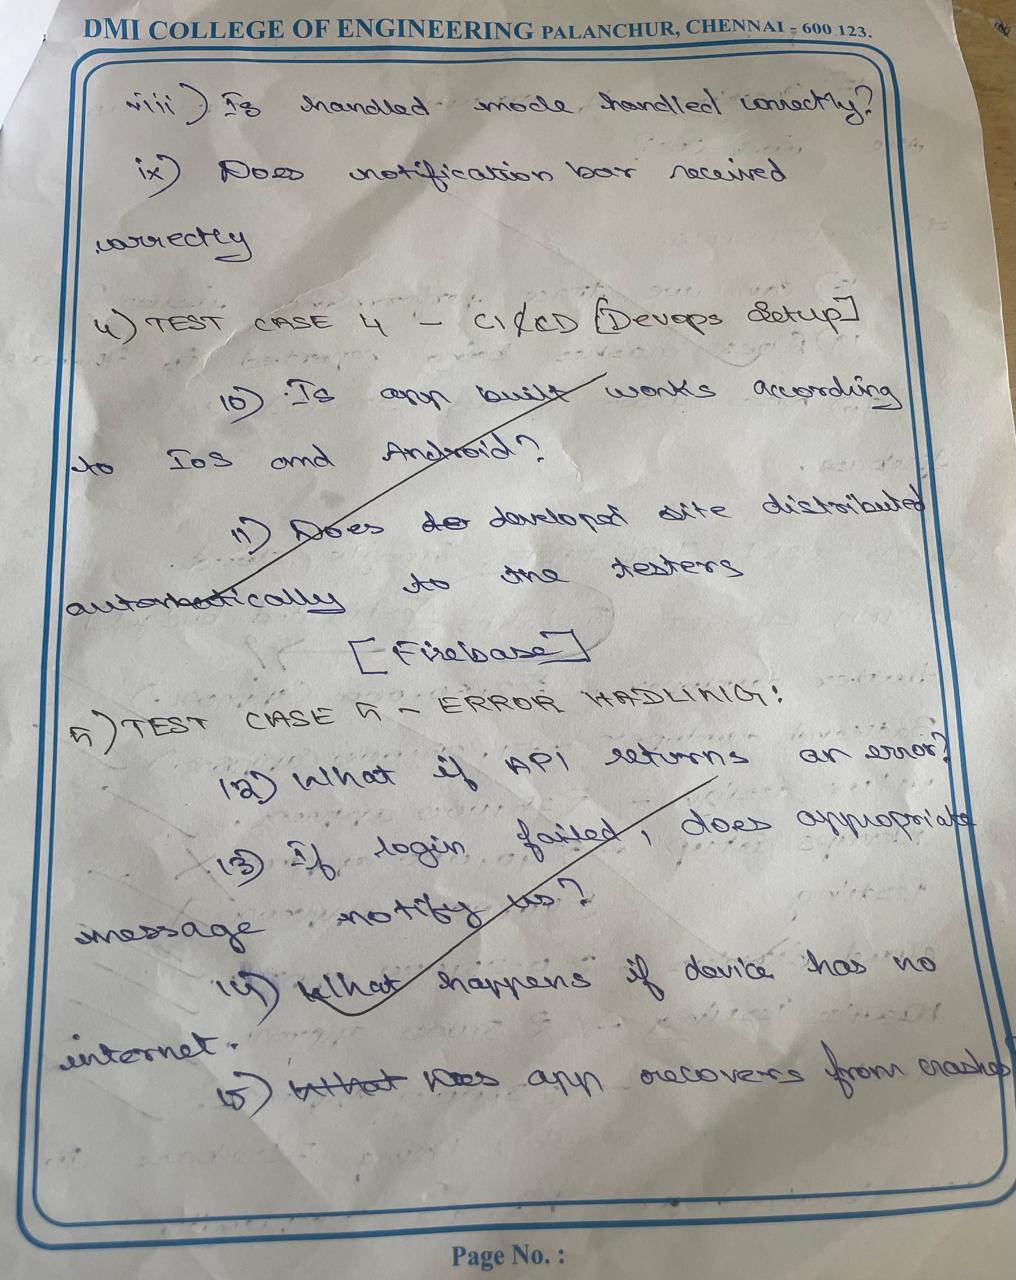 DMI COLLEGE OF ENGINEERING PALANCHUR, CHENNAI - 600 123.
viii) Is handled mode handled correctly?
ix) Does notification bar received
correctly
4) TEST CASE 4 - CI/CD [Devops Setup]
10) Is app built works according
to IoS and Android?
11) Does developer site distributed
automatically to the testers
[Firebase]
5) TEST CASE 5 - ERROR HADLING:
12) What if API returns an error?
13) If login failed, does appropriate
message notify us?
14) What happens if device has no
internet.
15) What Does app recovers from crashes
Page No. :